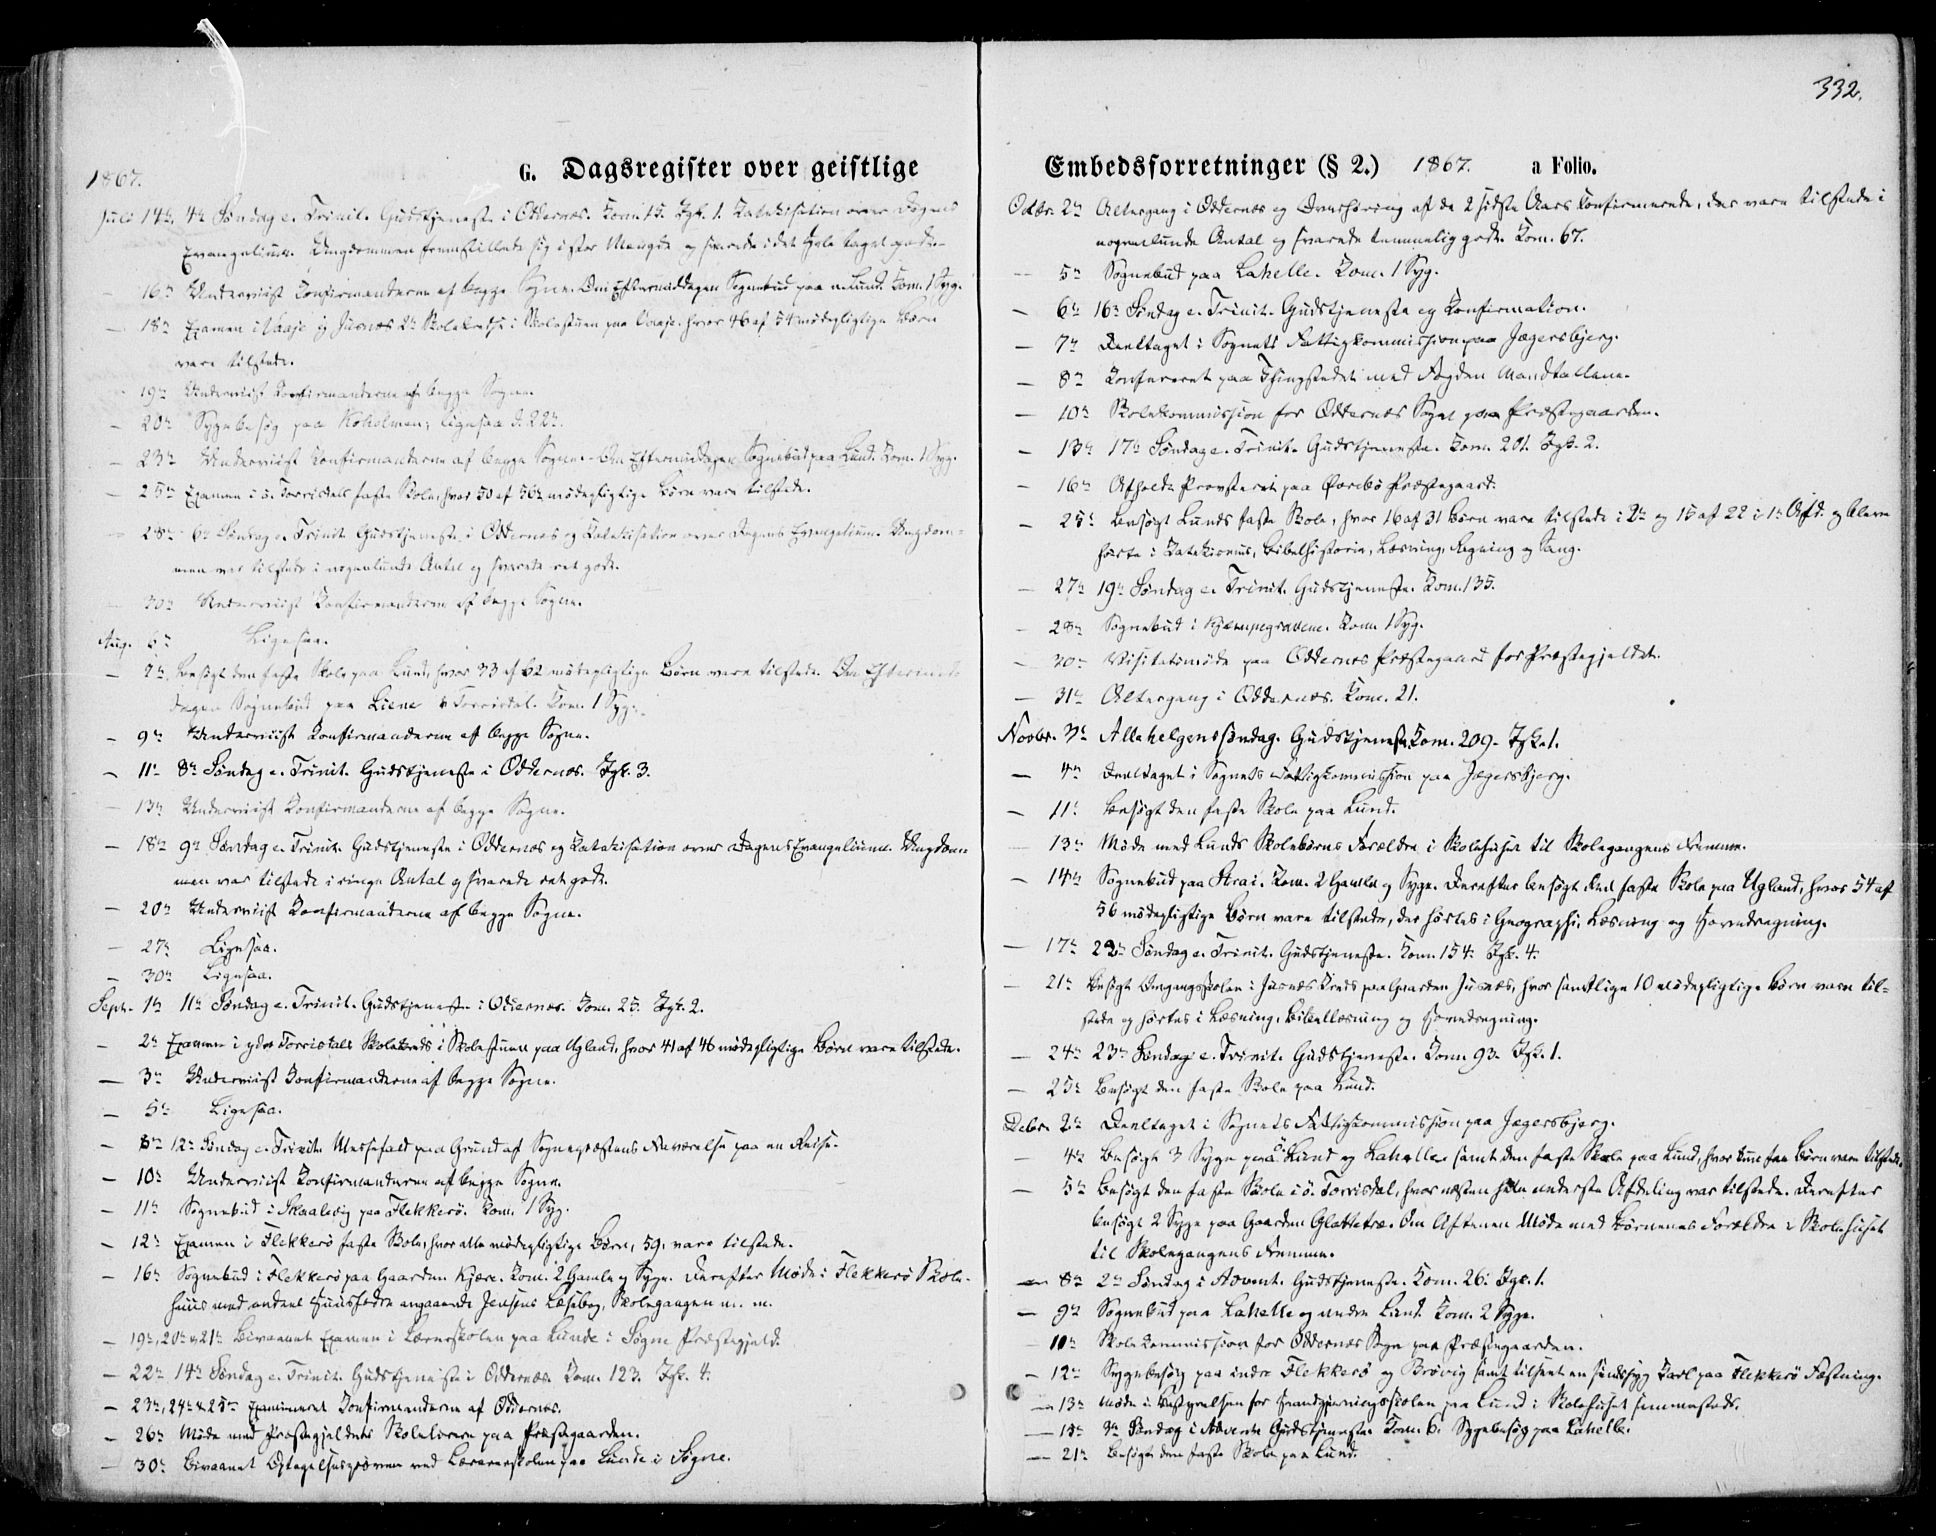 332.
G. Dagsregister over geistlige
1867.
Juli 14de 4de Søndag e. Trinit. Gudstjeneste i Oddernæs. Kom. 15. Tgk. 1. Katekisation over Dagens
Evangelium. Ungdommen fremstillede sig i stor Mængde og svarede i det Hele taget godt.
— 16de Underviist Konfirmanderne af begge Sogne. Om Eftermiddagen Sognebud paa n. Lund. Kom. 1 Syg.
— 18de Examen i Vaaje og Jusnæs 2de Skolekredse i Skolestuen paa Vaaje, hvor 46 af 54 mødepligtige Børn
vare tilstede.
— 19de Underviist Konfirmanderne af begge Sogne.
— 20de Sygebesøg paa Kokolmen; ligesaa d. 22de.
— 23de Underviist Konfirmanderne af begge Sogne. Om Eftermiddagen Sognebud paa Lund. Kom. 1 Syg.
— 25de Examen i ö. Torrisdals faste Skole, hvor 50 af 56 mødepligtige Børn vare tilstede.
— 28de 6te Søndag e. Trinit. Gudstjeneste i Oddernæs og Katekisation over Dagens Evangelium. Ungdom-
men var tilstede i nogenlunde Antal og svarede ret godt.
— 30te Underviist Konfirmanderne af begge Sogne.
Aug. 6te Ligesaa.
— 7de Besøgt den faste Skole paa Lund, hvor 33 af 62 mødepligtige Børn vare tilstede. Om Eftermid-
dagen Sognebud paa Liene Torrisdal. Kom. 1 Syg.
— 9de Underviist Konfirmanderne af begge Sogne.
— 11te 8de Søndag e. Trinit. Gudstjeneste i Oddernæs. Tgk. 3.
— 13de Underviist Konfirmanderne af begge Sogne.
— 18de 9de Søndag e. Trinit. Gudstjeneste i Oddernæs og Katekisation over Dagens Evangelium. Ungdom-
men var tilstede i ringe Antal og svarede ret godt.
— 20de Underviist Konfirmanderne af begge Sogne.
— 27de Ligesaa.
— 30te Ligesaa.
Septr. 1ste 11te Søndag e. Trinit. Gudstjeneste i Oddernæs. Kom. 25. Tgk. 2.
— 2den Examen i ydre Torrisdals Skolekreds i Skolestuen paa Ugland, hvor 41 af 46 mødepligtige Børn vare tilstede.
— 3die Underviist Konfirmanderne af begge Sogne.
— 5te Ligesaa.
— 8de 12te Søndag e. Trinit. Messefald paa Grund af Sognepræstens Fraværelse paa en Reise.
— 10de Underviist Konfirmanderne af begge Sogne.
— 11te Sognebud i Skaalevig paa Flekkerö. Kom. 1 Syg.
— 12te Examen i Flekkerö faste Skole, hvor alle mødepligtige Børn, 59, vare tilstede.
— 16de Sognebud i Flekkerö paa Gaarden Kjære. Kom. 2 Gamle og Syge. Derefter Møde i Flekkerö Skole-
huus med endeel Huusfædre angaaende Jensens Læsebog, Skolegangen m. m.
— 19de, 20de & 21de Bivaanet Examen i Lærerskolen paa Lunde i Søgne Præstegjeld.
— 22de 14de Søndag e. Trinit. Gudstjeneste i Oddernæs. Kom. 123. Tgk. 4.
— 23de, 24de & 25de Examineret Konfirmanderne af Oddernæs.
— 26de Møde med Præstegjeldets Skolelærere paa Præstegaarden.
— 30te Bivaanet Optagelsesprøven ved Lærerskolen paa Lunde i Søgne.
Embedsforretninger (§ 2.) 1867. a Folio.
Octbr. 2den Altergang i Oddernæs og Overhøring af de 2 sidste Aars Konfirmerede, der vare tilstede i
nogenlunde Antal og svarede temmelig godt. Kom. 67.
— 5te Sognebud paa Lahelle. Kom. 1 Syg.
— 6te 16de Søndag e. Trinit. Gudstjeneste og Konfirmation.
— 7de Deeltaget i Sognets Fattigkommission paa Jægersbjerg.
— 8de Konfereret paa Thingstedet med Fogden Mandtallene.
— 10de Skolekommission for Oddernæs Sogn paa Præstegaarden.
— 13de 17de Søndag e. Trinit. Gudstjeneste. Kom. 201. Tgk. 2.
— 16de Afholdt Provsteret paa Øvrebö Præstegaard.
— 25de Besøgt Lunds faste Skole, hvor 16 af 31 Børn vare tilstede i 2den og 15 af 22 i 1ste Afd. og bleve
hørte i Katekismus, Bibelhistorie, Læsning, Regning og Sang.
— 27de 19de Søndag e. Trinit. Gudstjeneste. Kom. 135.
— 28de Sognebud i Kjæmpegravene. Kom. 1 Syg.
— 30te Visitatsmøde paa Oddernæs Præstegaard for Præstegjeldet.
— 31te Altergang i Oddernæs. Kom. 21.
Novbr. 3die Allehelgenssøndag. Gudstjeneste. Kom. 209. Tgk. 1.
— 4de Deeltaget i Sognets Fattigkommission paa Jægersbjerg.
— 11te Besøgt den faste Skole paa Lund.
— 13de Møde med Lunds Skolebørns Forældre i Skolehuset til Skolegangens Fremme.
— 14de Sognebud paa Strai. Kom. 2 Gamle og Syge. Derefter besøgt den faste Skole paa Ugland, hvor 54 af
56 mødepligtige Børn vare tilstede, der hørtes i Geographi, Læsning og Hovedregning.
— 17de 22de Søndag e. Trinit. Gudstjeneste. Kom. 154. Tgk. 4.
— 21de Besøgt Omgangsskolen i Jusnæs Kreds paa Gaarden Jusnæs, hvor samtlige 10 mødepligtige Børn vare til-
stede og hørtes i Læsning, Bibellæsning og Hovedregning.
— 24de 23de Søndag e. Trinit. Gudstjeneste. Kom. 93. Tgk. 1.
— 25de Besøgt den faste Skole paa Lund.
Decbr. 2den Deeltaget i Sognets Fattigkommission paa Jægersbjerg.
— 4de Besøgt 3 Syge paa ö. Lund og Lahelle samt den faste Skole paa Lund, hvor kun faa Børn vare tilstede.
— 5te Besøgt den faste Skole i ö. Torrisdal, hvor næsten hele nederste Afdeling var tilstede. Derefter
besøgt 2 Syge paa Gaarden Glattetræ. Om Aftenen Møde med Børnenes Forældre i Skolehuset
til Skolegangens Fremme.
— 8de 2den Søndag i Advent. Gudstjeneste. Kom. 26. Tgk. 1.
— 9de Sognebud paa Lahelle og nedre Lund. Kom. 2 Syge.
— 10de Skolekommission for Oddernæs Sogn paa Præstegaarden.
— 12te Sygebesøg paa indre Flekkerö og Brövig samt tilseet en sindssyg Karl paa Flekkerö Fæstning.
— 13de Møde i Bestyrelsen for Haandgjerningsskolen paa Lund i Skolehuset sammesteds.
— 15de 3die Søndag i Advent. Gudstjeneste. Kom. 6. Sygebesøg paa Lahelle.
— 21de Besøgt den faste Skole paa Lund.